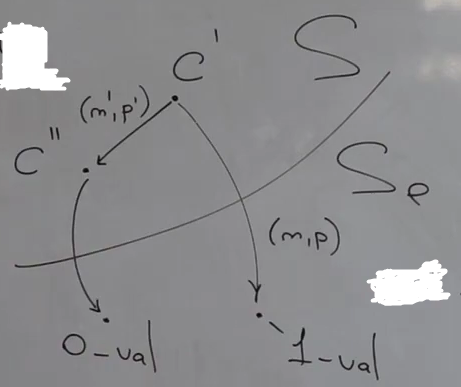 C' S
(m',p')
C''
S_e
(m,p)
0-val
1-val